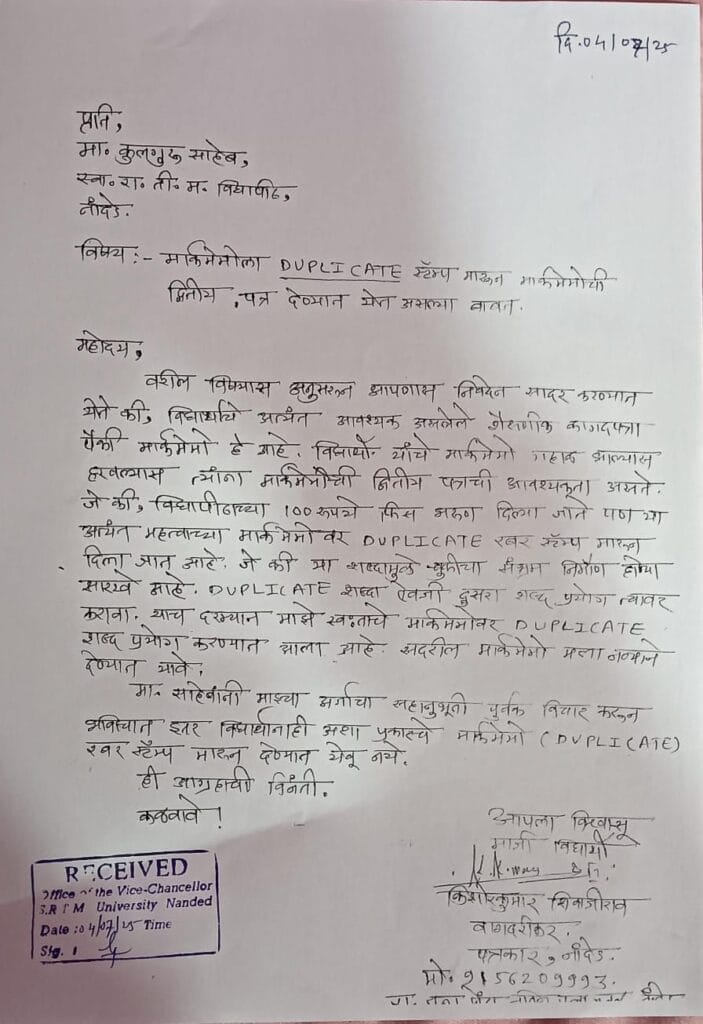 दि.04/07/25
प्रति,
मा. कुलगुरु साहेब,
स्वा. रा. ती. म. विद्यापीठ,
नांदेड.
विषय :- मार्कमेमोला DUPLICATE स्टॅम्प मारून मार्कमेमोची
द्वितीय पत्र देण्यात येत असल्या बाबत.
महोदय,
वरील विषयास अनुसरून आपणास निवेदन सादर करण्यात
येते की, विद्यार्थ्यांचे अत्यंत आवश्यक असलेले शैक्षणिक कागदपत्रा
पैकी मार्कमेमो हे आहे. विद्यार्थी यांचे मार्कमेमो गहाळ झाल्यास
हरवल्यास त्यांना मार्कमेमोची द्वितीय पत्राची आवश्यकता असते.
जे की, विद्यापीठाच्या 100 रुपये फिस भरुण दिल्या जाते पण या
अत्यंत महत्वाच्या मार्कमेमोवर DUPLICATE रबर स्टॅम्प मारून
दिला जात आहे. जे की या शब्दामुळे चुकीचा संभ्रम निर्माण होण्या
सारखे आहे. DUPLICATE शब्दा ऐवजी दुसरा शब्द प्रयोग त्यावर
करावा. याच दरम्यान माझे स्वतःचे मार्कमेमोवर DUPLICATE
शब्द प्रयोग करण्यात आला आहे. सदरील मार्कमेमो मला नव्याने
देण्यात यावे.
मा. साहेबांनी माझ्या अर्जाचा सहानुभूती पुर्वक विचार करून
भविष्यात इतर विद्यार्थांनाही अशा प्रकारचे मार्कमेमो (DUPLICATE)
रबर स्टॅम्प मारून देण्यात येवू नये.
ही आग्रहाची विनंती.
कळवावे !
आपला विश्वासू
माजी विद्यार्थी
किशोरकुमार शिवाजीराव
वागदरीकर.
पत्रकार, नांदेड.
मो. 9156209993.
RECEIVED
Office of the Vice-Chancellor
S.R.T.M University Nanded
Date : 04/07/25 Time
Sig.